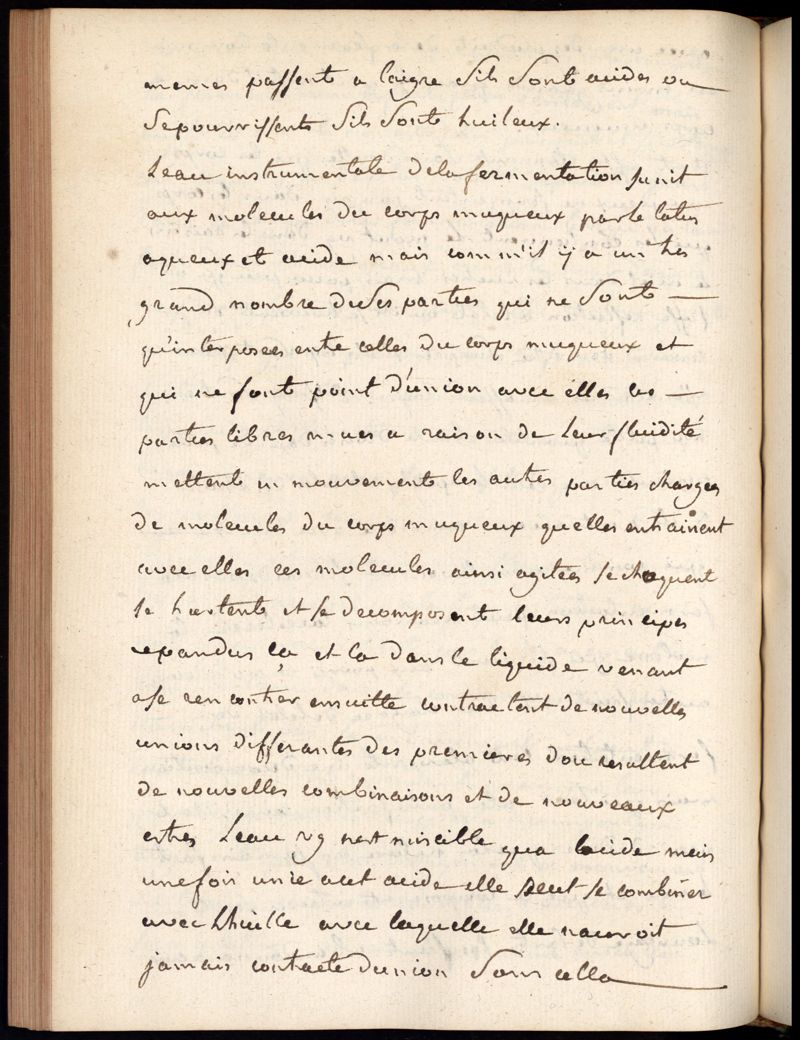 memes passent a laigre Sils Sont acides ou
Sepourrissents Sils Sont huileux.
Leau instrumentale dela fermentation sunit
aux molecules du corps muqueux par le latus
aqueux et acide mais comm'il ÿ a un tres
grand nombre de ses parties qui ne Sont
qu'interposees entre celles du corps muqueux et
qui ne font point d'union avec elles les
parties libres mues a raison de leur fluidité
mettent en mouvement les autres parties chargees
de molecules du corps muqueux quelles entrainent
avec elles ces molecules ainsi agitées se choquent
se heurtent et se decomposent leurs principes
repandus ça et la dans le liquide venant
a se rencontrer ensuitte contractent de nouvelles
unions differantes des premieres dou resultent
de nouvelles combinaisons et de nouveaux
estres Leau vg nest miscible qua lacide mais
une fois unie acet acide elle peut se combiner
avec Lhuille avec laquelle elle nauroit
jamais contracté dunion Sans cella